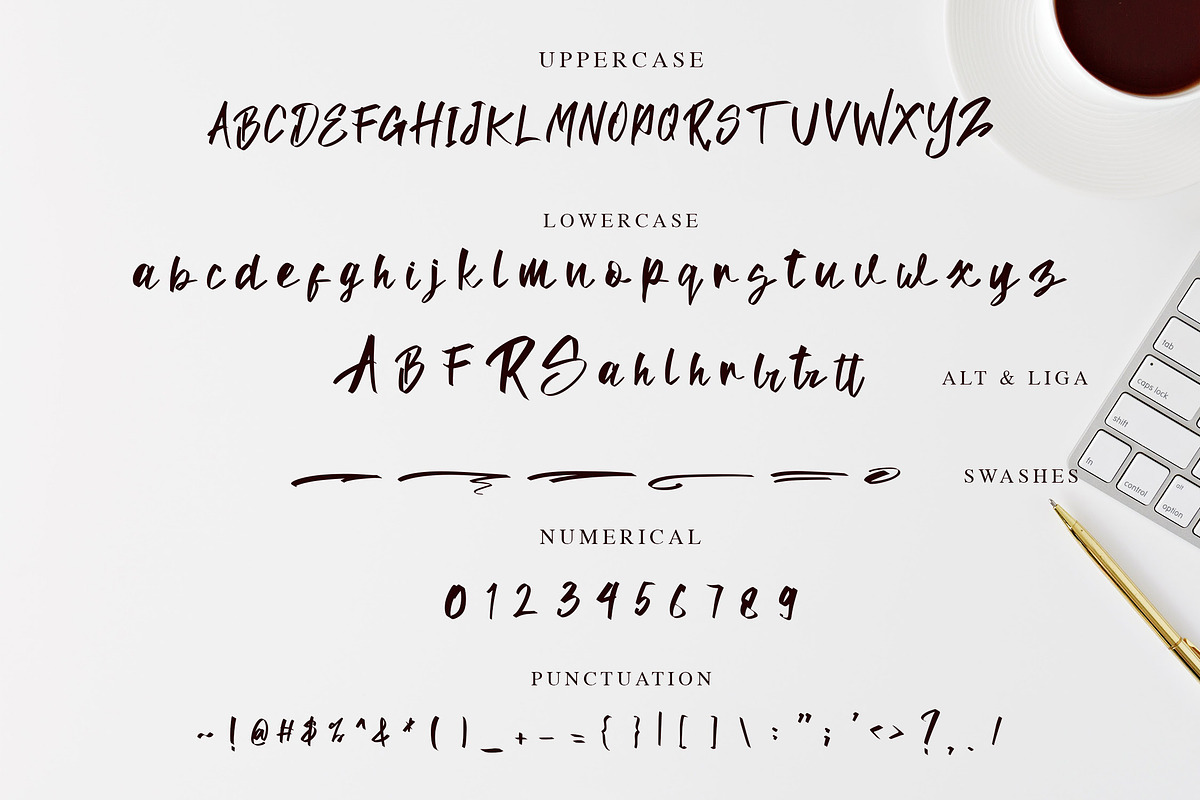 UPPERCASE
ABCDEFGHIJKLMNOPQRSTUVWXYZ
LOWERCASE
a b c d e f g h i j k l m n o p q r s t u v w x y z
A B F R S a h l h r br tr tt
ALT & LIGA
SWASHES
NUMERICAL
0 1 2 3 4 5 6 7 8 9
PUNCTUATION
~ ! @ # $ % ^ & * ( ) _ + - = { } | [ ] \ : " ; ' < > ? , . /
tab
caps lock
shift
fn
control
alt
option